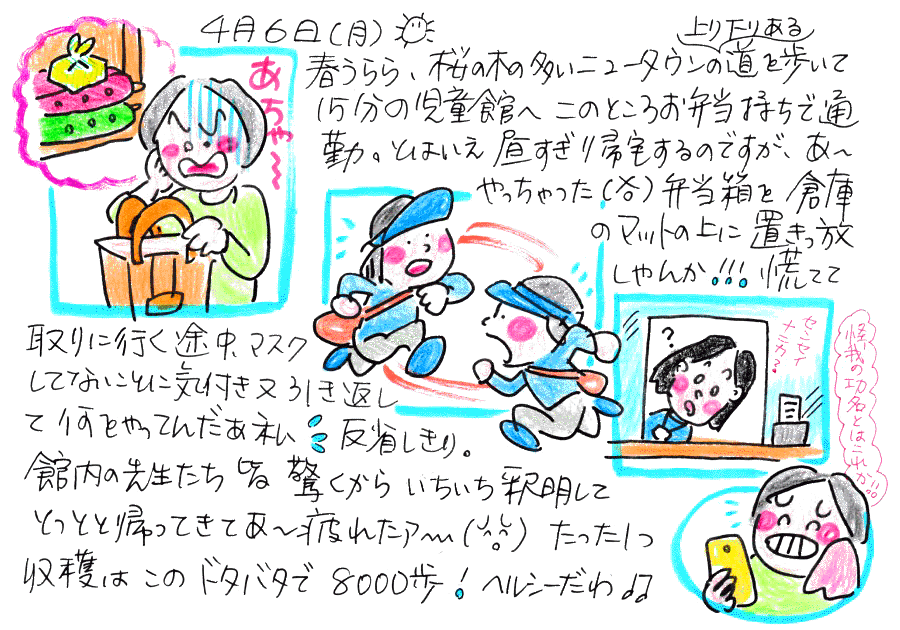 4月6日(月)
上り下りある
春うらら、桜の木の多いニュータウンの道を歩いて
15分の児童館へ このところお弁当持ちで通
勤。とはいえ昼すぎり帰宅するのですが、あ〜
やっちゃった(汗)弁当箱を倉庫
のマットの上に置きっ放
しゃんか!!! 慌てて
取りに行く途中、マスク
してないことに気付き又引き返し
て何をやってんだあネい 反省しきり。
館内の先生たち皆驚くからいちいち釈明して
とっとと帰ってきてあ〜疲れたァ〜 たった1つ
収穫はこのドタバタで8000歩!ヘルシーだわ♫
あちゃ〜
?
センセイ
ナニカ?
怪我の功名とはこれか!!